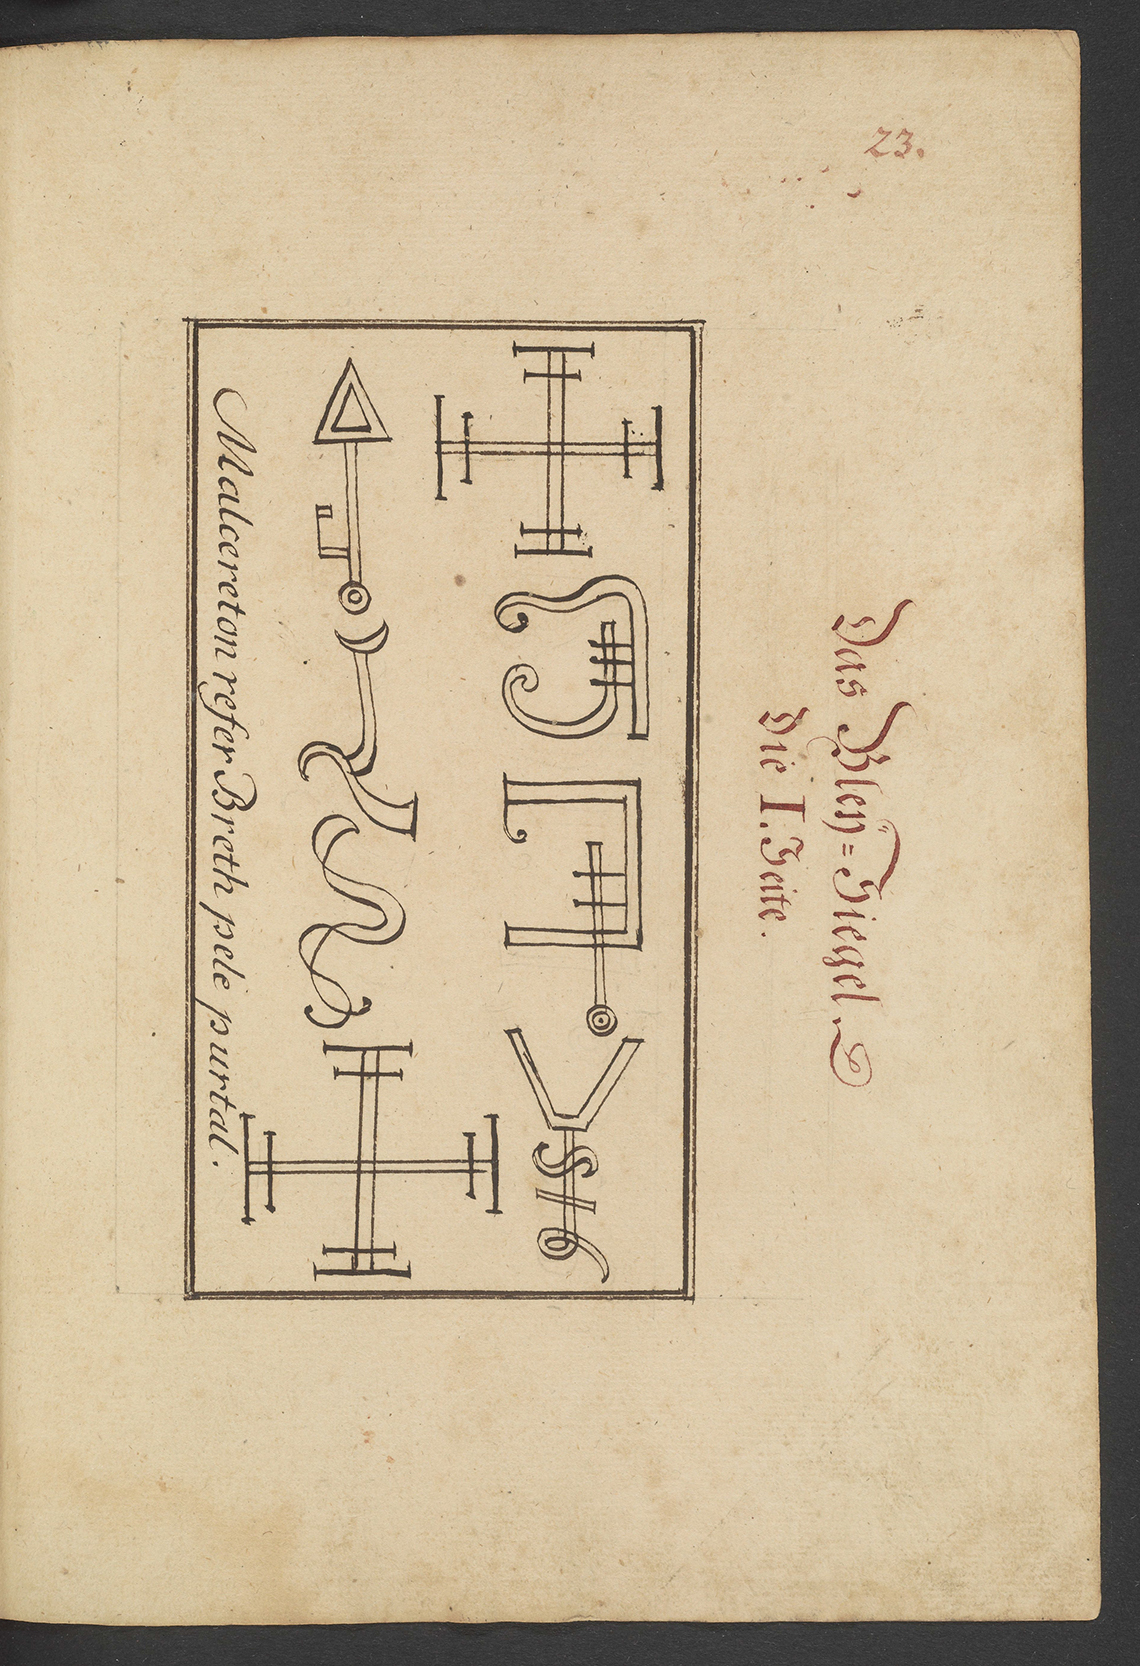 23.
Das Bley-Siegel
Die I. Seite.
Malcereton refer Breth pele purtal.